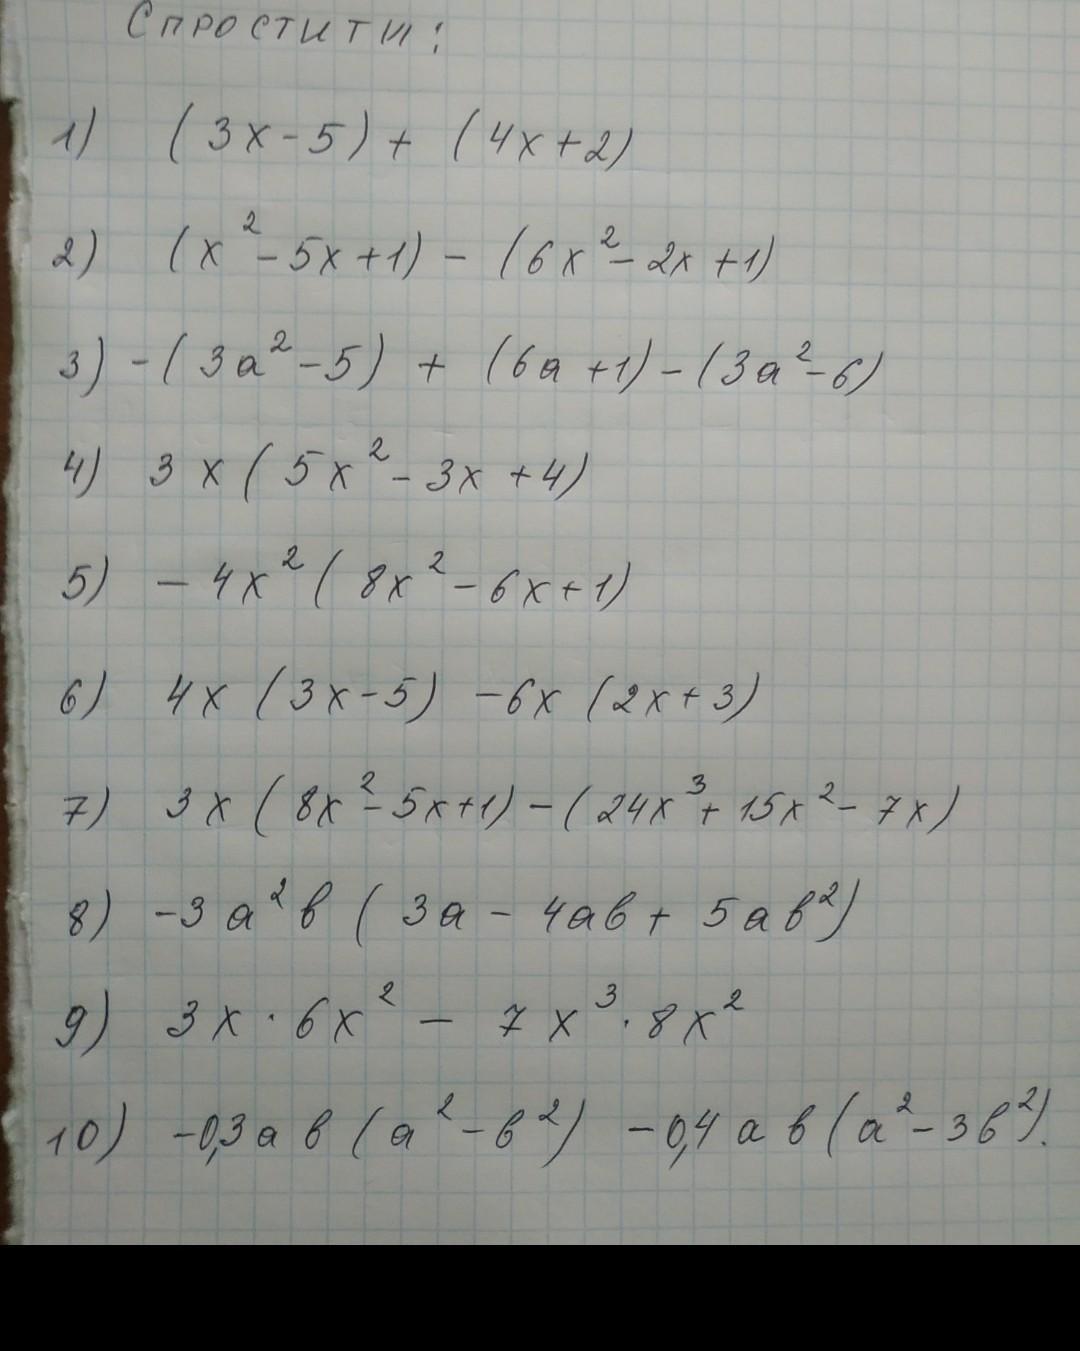 Спростити:
1) (3x-5)+(4x+2)
2) (x²-5x+1)-(6x²-2x+1)
3) -(3a²-5)+(6a+1)-(3a²-6)
4) 3x(5x²-3x+4)
5) -4x²(8x²-6x+1)
6) 4x(3x-5)-6x(2x+3)
7) 3x(8x²-5x+1)-(24x³+15x²-7x)
8) -3a²b(3a-4ab+5ab²)
9) 3x·6x²-7x³·8x²
10) -0,3ab(a²-b²)-0,4ab(a²-3b²).